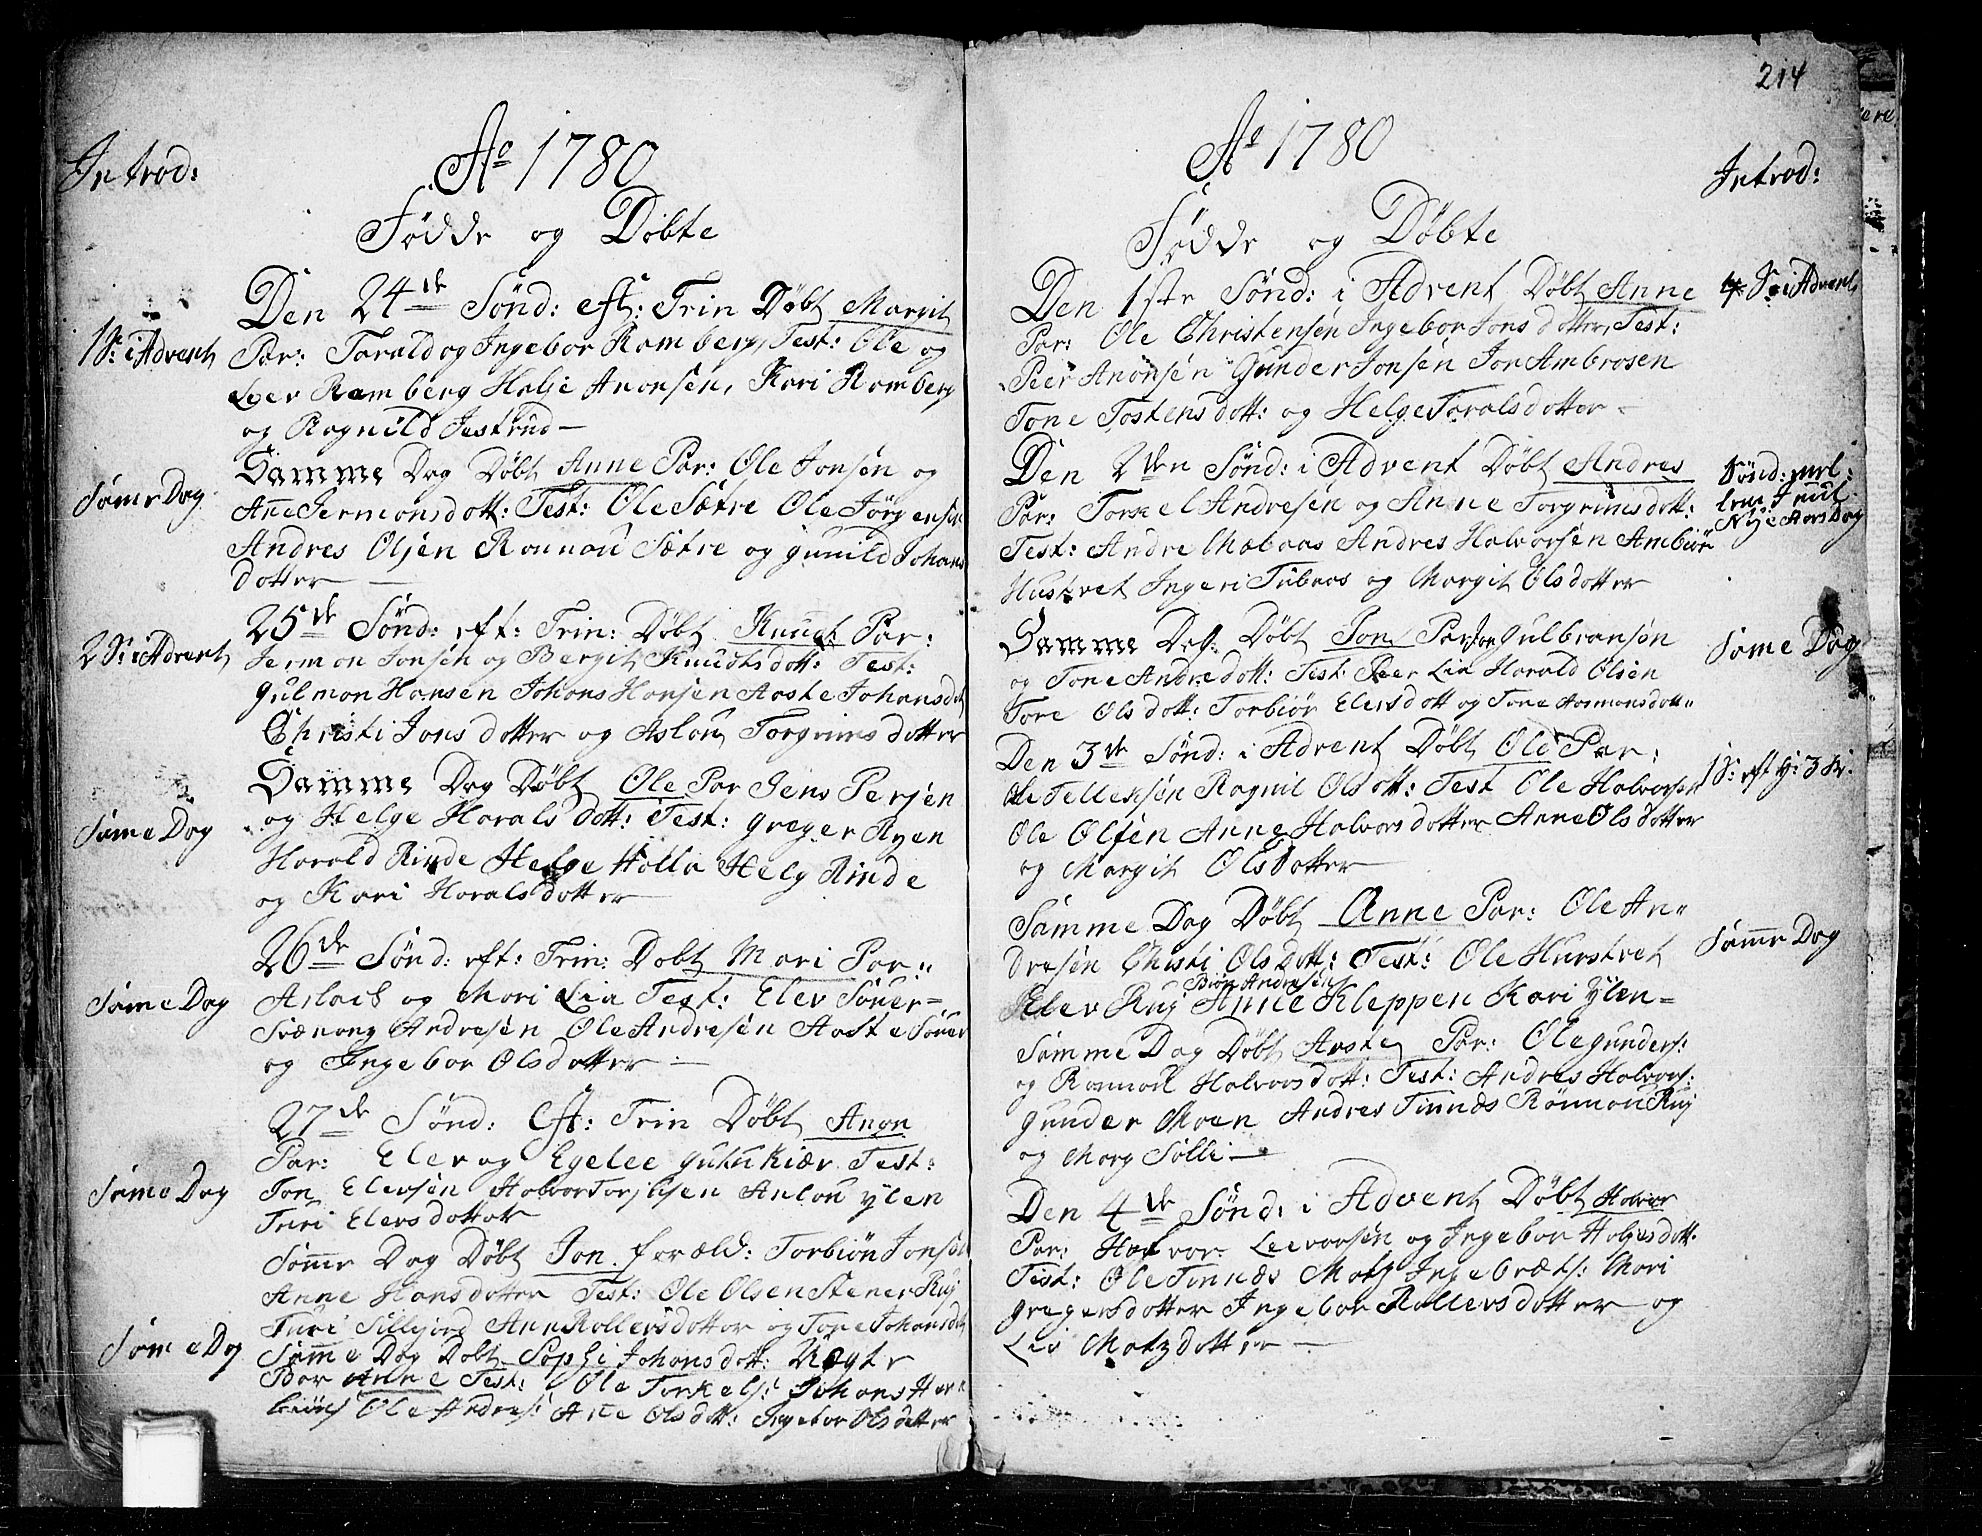 Introd:
Ao 1780
Fødde og Døbte
Den 24de Sønd: eft: Trin Døbt Margit
1 S: i Advent
Par: Tarald og Ingebor Ramberg, Test: Ole og
Peer Ramberg Helje Anonsen, Kari Ramberg
og Ragnild Jestrud
Samme Dag Døbt Anne Par: Ole Jonsen og
Same Dag
Ane Jermonsdott: Test: Ole Sætre Ole Jørgensen
Andres Olsen Rönnou Sætre og gunild Johans
dotter
25de Sønd: eft: Trin: Døbt Knudt Par:
2 S: i Advent
Jermon Jonsen og Bergit Knudtsdott: Test:
gulmon Hansen Johans Hansen Aaste Johansd
Christi Jonsdotter og Aslou Torgrimsdotter
Samme Dag Døbt Ole Par Jens Persen
Same Dag
og Helge Haralsdott: Test: greger Ryen
Harald Rinde Helge Holla Helg Rinde
og Kari Haralsdotter
26de Sønd: eft: Trin: Døbt Mari Par:
Same Dag
Aslack og Mari Lia Test: Elev Søuer
Svænong Andresen Ole Andresen Aaste Søuer
og Ingebor Olsdotter
27de Sønd: eft: Trin Døbt Anon
Par: Elev og Egelee gutukiær Test:
Same Dag
Jon Elevsen Halvor Torjusen Anlou Ylen
Turi Elevsdotter
Samme Dag Døbt Jon foræld: Torbiøn Jonsen
Anne Hansdotter Test: Ole Olsen Stener Ruj
Turi Silljord Ann Rollevsdotter og Tone Johansd
Same Dag
Samme Dag Døbt Sophi Johansdott: Uægte
Bar Anne Test: Ole Torkels: Johans Her
biøns Ole Andres: Ane Olsdott: Ingebor Olsdotter
214
Ao 1780
Introd:
Fødde og Døbte
Den 1ste Sønd: i Advent Døbt Anne
4 S: i Advent
Par: Ole Christensen Ingebor Jonsdotter, Test:
Peer Anonsen Gunder Jonsen Jon Ambrosen
Tone Tostensdott: og Helge Taralsdotter
Den 2den Sønd: i Advent Døbt Andres
Sønd: mel:
lem Juul
Nye Aars Dag
Par: Torkel Andresen og Anne Torgrimsdott:
Test: Andre Andres Halvorsen Ambiør
Hustvet Ingeri Tubaas og Margit Olsdotter
Samme Dag Døbt Jon Par Jon Gulbransen
Same Dag
og Tone Andredott: Test: Peer Lia Harald Olsen
Tore Olsdott: Torbiør Elevsdott og Tone Aamonsdott
Den 3de Sønd: i Advent Døbt Ole Par:
1 S: eft H: 3 K:
Ole Tellefsen Ragnil Olsdott: Test Ole Halvorsen
Ole Olsen Anne Halvorsdotter Anne Olsdotter
og Margit Olsdotter
Samme Dag Døbt Anne Par: Ole An
Same Dag
dresen Christi Olsdott: Test: Ole Hustvet
Biøn Andresen
Elev Ruj Anne Kleppen Kari Ylen
Samme Dag Døbt Aaste Par: Ole gunders:
og Rönnou Halvorsdott: Test: Andres Halvors:
gunder Moen Andres Tinnæs Rönnou Ruj
og Marg Sølli
Den 4de Sønd: i Advent Døbt Halvor
Par: Halvor Leevorsen og Ingebor Holjesdott
Test: Ole Tinnæs Matz Ingebræts: Mari
gregersdotter Ingebor Rollevsdotter og
Liv Matzdotter